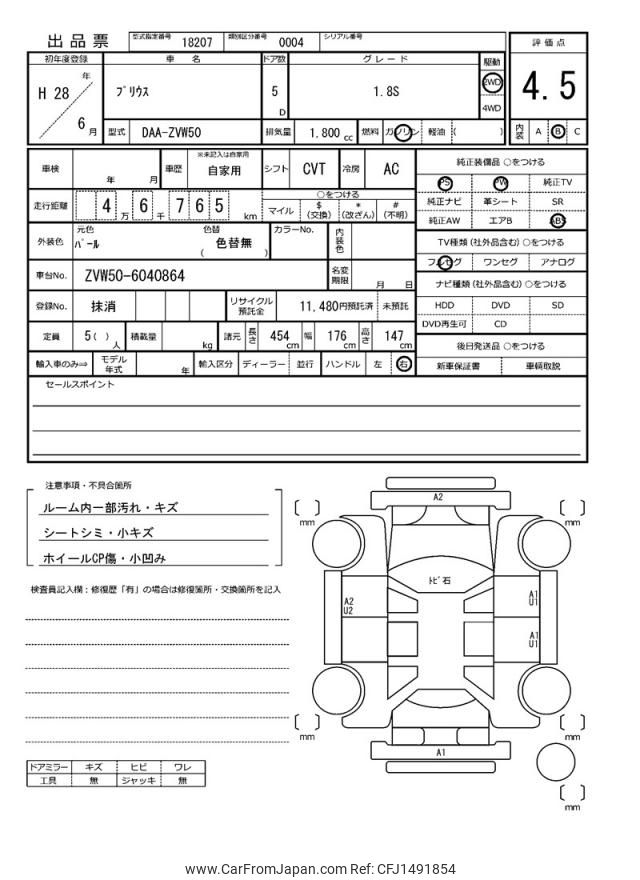 出品票
型式指定番号 18207 類別区分番号 0004 シリアル番号
初年度登録 車名 ドア数 グレード 駆動 評価点
H 28 年 6 月
プリウス 5 D 1.8S 2WD 4WD 4.5
型式 DAA-ZVW50 排気量 1,800 cc 燃料 ガソリン 軽油 ( ) 内装 A B C
車検 年 月 車歴 ※未記入は自家用 自家用 シフト CVT 冷房 AC
走行距離 4万6千765 km ○をつける マイル $(交換) *(改ざん) #(不明)
外装色 元色 パール 色替 色替無 ( ) カラーNo. 内装色
車台No. ZVW50-6040864 名変期限 月 日
登録No. 抹消 リサイクル預託金 11,480円預託済 未預託
定員 5( )人 積載量 kg 諸元 長さ 454 cm 幅 176 cm 高さ 147 cm
輸入車のみ⇒ モデル年式 年 輸入区分 ディーラー 並行 ハンドル 左 右
純正装備品 ○をつける
PS PW 純正TV
純正ナビ 革シート SR
純正AW エアB ABS
TV種類 (社外品含む) ○をつける
フルセグ ワンセグ アナログ
ナビ種類 (社外品含む) ○をつける
HDD DVD SD
DVD再生可 CD
後日発送品 ○をつける
新車保証書 車輌取説
セールスポイント
注意事項・不具合箇所
ルーム内一部汚れ・キズ
シートシミ・小キズ
ホイールCP傷・小凹み
検査員記入欄：修復歴「有」の場合は修復箇所・交換箇所を記入
ドアミラー キズ ヒビ ワレ
工具 無 ジャッキ 無
A2
mm
mm
トビ石
A2
U2
A1
U1
A1
U1
mm
mm
A1
mm
www.CarFromJapan.com Ref: CFJ1491854